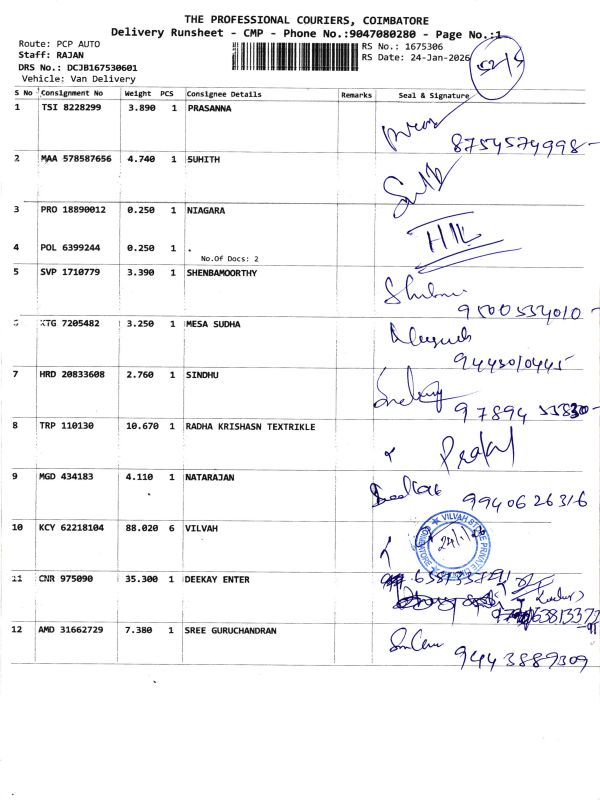 THE PROFESSIONAL COURIERS, COIMBATORE
Delivery Runsheet - CMP - Phone No.:9047080280 - Page No.:1
Route: PCP AUTO
RS No.: 1675306
Staff: RAJAN
RS Date: 24-Jan-2026
DRS No.: DCJB167530601
Vehicle: Van Delivery
S No Consignment No Weight PCS Consignee Details Remarks Seal & Signature
1 TSI 8228299 3.890 1 PRASANNA
8754574998-
2 MAA 578587656 4.740 1 SUHITH
3 PRO 18890012 0.250 1 NIAGARA
4 POL 6399244 0.250 1 .
No.Of Docs: 2
5 SVP 1710779 3.390 1 SHENBAMOORTHY
9500534010-
6 KTG 7205482 3.250 1 MESA SUDHA
7 HRD 20833608 2.760 1 SINDHU
8 TRP 110130 10.670 1 RADHA KRISHASN TEXTRIKLE
9 MGD 434183 4.110 1 NATARAJAN
9940626316
10 KCY 62218104 88.020 6 VILVAH
VILVAH STORE PRIVATE
24/1/26
11 CNR 975090 35.300 1 DEEKAY ENTER
12 AMD 31662729 7.380 1 SREE GURUCHANDRAN
9443889309